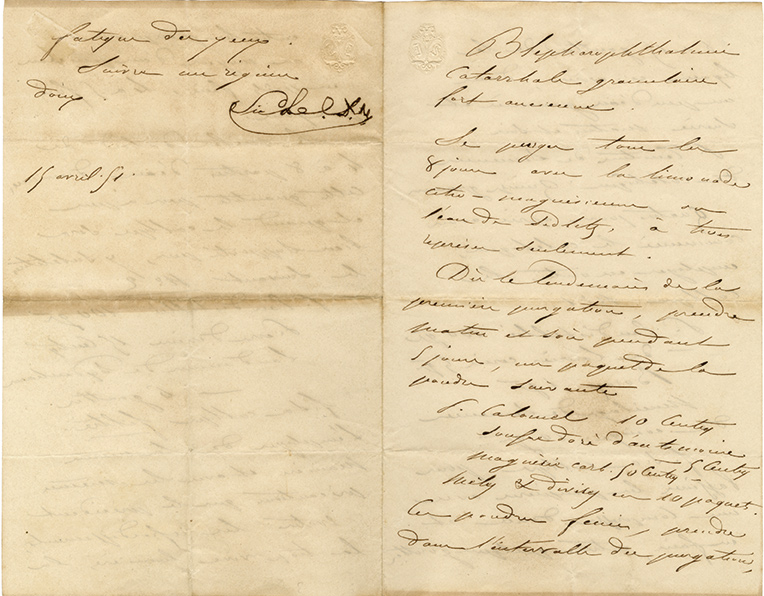 fatigue des yeux.
Suivre un régime
doux.
Sichel D.M.
15 avril 51.
Blepharophthalmie
Catarrhale granulaire
fort ancienne.
Se purger tous les
8 jours avec la limonade
citro-magnésienne ou
l'eau de Sedlitz, à trois
reprises seulement.
Dès le lendemain de la
première purgation, prendre
matin et soir pendant
5 jours, un paquet de la
poudre suivante
P. Calomel 10 Centig
Soufre doré d'antimoine
5 Centig
magnésie carb. 50 Centig
mêlez & divisez en 10 paquets.
Ces poudres finies, prendre
dans l'intervalle des purgations,